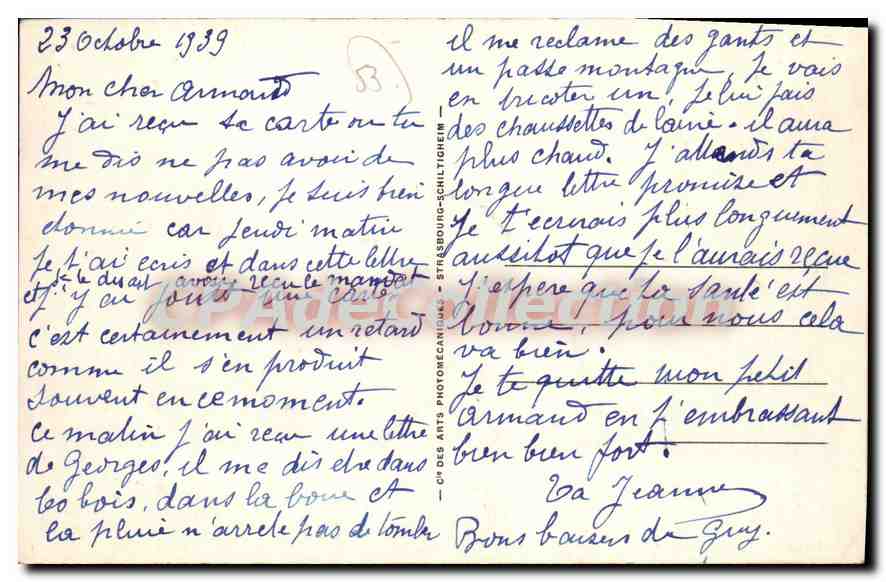 23 Octobre 1939
53
Mon cher Armand
J'ai reçu ta carte ou tu
me dis ne pas avoir de
mes nouvelles, je suis bien
étonnée car jeudi matin
je t'ai ecris et dans cette lettre
je te disait avoir reçu le mandat
et j'y ai joint une carte
c'est certainement un retard
comme il s'en produit
souvent en ce moment.
ce matin j'ai reçu une lettre
de Georges, il me dis etre dans
les bois, dans la boue et
la pluie n'arrete pas de tomber
il me reclame des gants et
un passe montagne, je vais
en tricoter un, je lui fais
des chaussettes de laine. il aura
plus chaud. J'attends ta
longue lettre promise et
je t'ecrirais plus longuement
aussitot que je l'aurais reçue
J'espere que ta santé est
bonne, pour nous cela
va bien.
Je te quitte mon petit
Armand en t'embrassant
bien bien fort.
Ta Jeanne
Bons baisers de Guy.
Cie DES ARTS PHOTOMÉCANIQUES - STRASBOURG-SCHILTIGHEIM
CPADeCollection